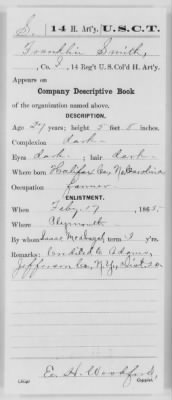 S. 14 H. Art'y. U.S.C.T.
Franklin Smith,
, Co. , 14 Reg't U.S. Col'd H. Art'y.
Appears on
Company Descriptive Book
of the organization named above.
DESCRIPTION.
Age 27 years; height 5 feet 8 inches.
Complexion dark
Eyes dark ; hair dark
Where born Halifax Co., N. Carolina
Occupation farmer
ENLISTMENT.
When Feby. 17 , 1865.
Where Plymouth
By whom Isaac term 3 y'rs.
Remarks: Credited to Adams,
Jefferson Co., N.Y., Dist. 20
E. H. Woodford,
Copyist.